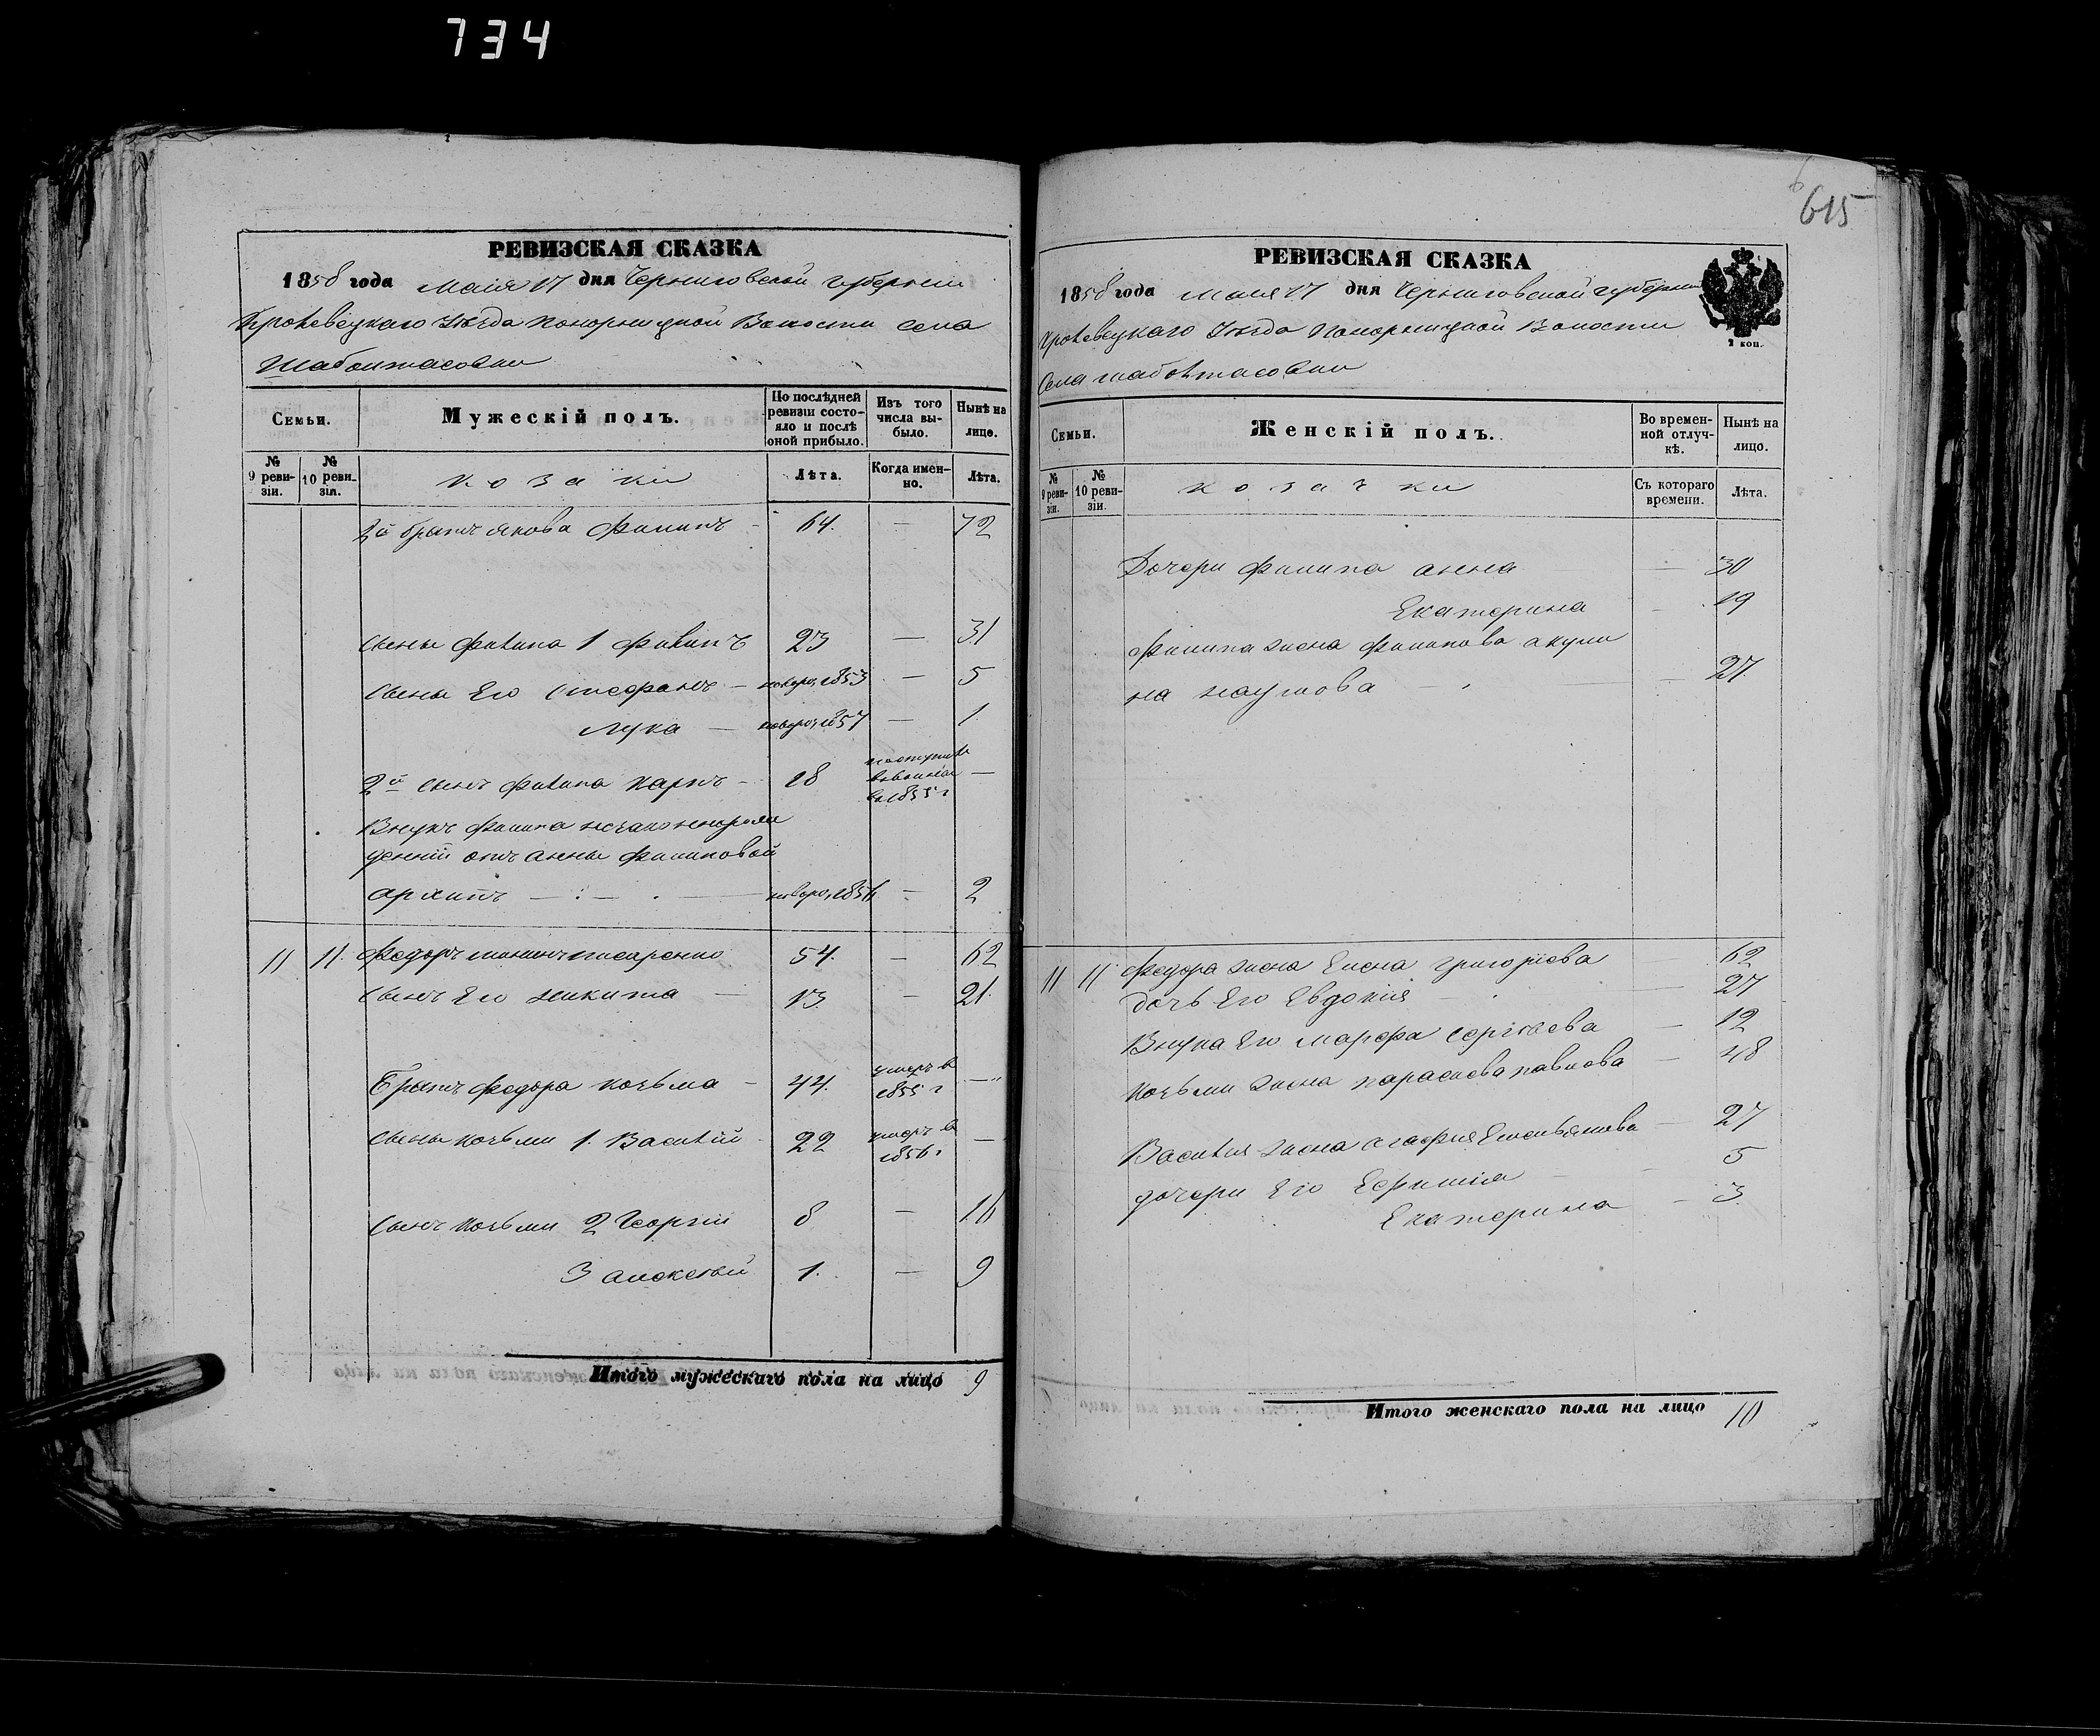 734
615
РЕВИЗСКАЯ СКАЗКА
1858 года Маія 17 дня Черниговской губерніи
Кролевецкаго Уѣзда Понорницкой Волости Села
Шаболтасовки
Семьи. Мужескій полъ. По послѣдней ревизіи состояло и послѣ оной прибыло. Изъ того числа выбыло. Нынѣ на лицо.
№ 9 ревизіи. № 10 ревизіи. козаки Лѣта. Когда именно. Лѣта.
2й братъ якова Филипъ 64. — 72
сыны Филипа 1 Филипъ 23 — 31
сыны Его Стефанъ — новоро, 1853 — 5
Лука — новоро, 1857 — 1.
2й сынъ Филипа Карпъ — 18 —
въ 1855 г
Внукъ Филипа незаконнорож
денній отъ Анны Филиповой
архипъ — новоро, 1856 — 2
11 11. Федоръ писаренко 54. — 62
сынъ Его Никита — 13. — 21.
Братъ Федора козьма — 44. умеръ в 1855 г —
сыны козьми 1. Василій 22 умеръ в 1856 г —
сынъ козьми 2 Георгій 8 — 16
3 алексѣй 1. — 9
Итого мужескаго пола на лицо 9
РЕВИЗСКАЯ СКАЗКА
1858 года Маія 17 дня Черниговской губерніи
Кролевецкаго Уѣзда Понорницкой Волости
Села шаболтасовки
2 коп.
Семьи. Женскій полъ. Во временной отлучкѣ. Нынѣ на лицо.
№ 9 ревизіи. № 10 ревизіи. козачки Съ котораго времени. Лѣта.
Дочери Филипа анна — 30
Екатерина — 19
Филипа жена Филипова акули
на наумова — 27.
11 11 Федора жена Елена григоріева 62
дочь Его Евдокія — 27
Внука Его Марфа сергѣева — 12
козьми жена параскева павлова — 48
Василія жена агафия Емельянова — 27
дочери Его Ефимія — 5
Екатерина — 3.
Итого женскаго пола на лицо 10